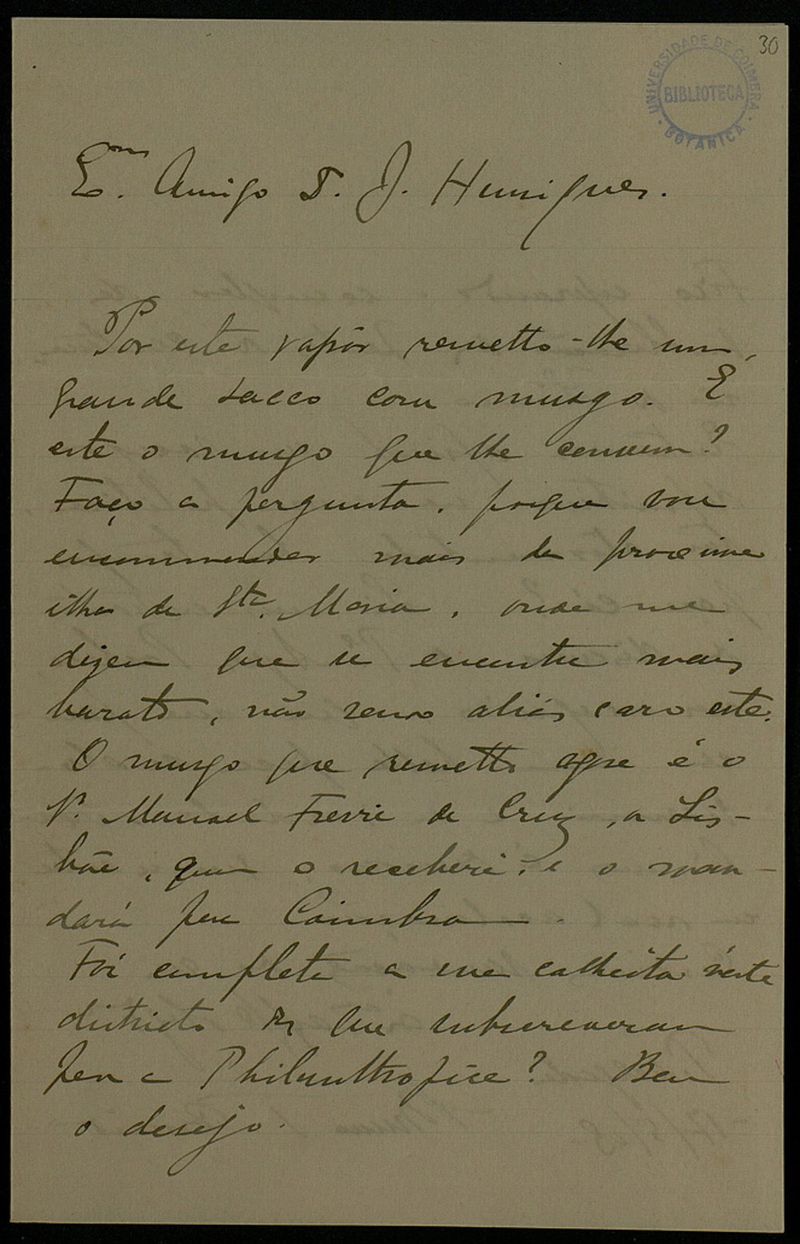 30
UNIVERSIDADE DE COIMBRA
BIBLIOTECA
BOTANICA
Exmo. Amigo D. J. Henriques.
Por este vapôr remetto-lhe um
grande sacco com musgo. É
este o musgo que lhe convem?
Faço a pergunta, porque vou
encommendar mais da proxima
ilha de Sta. Maria, onde me
dizem que se encontra mais
barato, não sendo aliás caro este.
O musgo que remetto agora é o
Sr. Manoel Freire da Cruz, a Lis-
bôa, quem o receberá, e o man-
dará para Coimbra.
Foi completa a sua colheita n'este
districto que subscreveram
para a Philanthropica? Bem
o desejo.